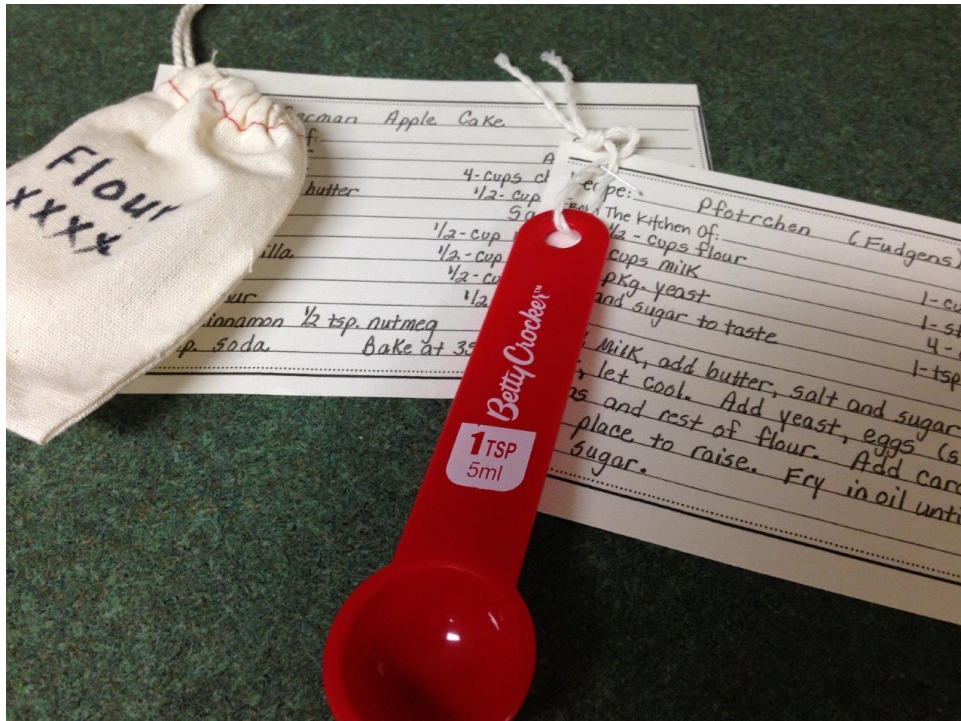 Flour
xxxx
German Apple Cake
4-cups
butter 1/2-cup
1/2-cup
1/2-cup
1/2-
1/2
cinnamon 1/2 tsp. nutmeg
soda Bake at
Recipe: Pfotrchen (Fudgens)
From The Kitchen Of:
1/2-cups flour
cups milk
pkg. yeast
and sugar to taste
1-
1-
4-
1-tsp
Milk, add butter, salt and sugar
let cool. Add yeast, eggs
and rest of flour. Add
place to raise. Fry in oil
sugar.
Betty Crocker™
1 TSP
5ml